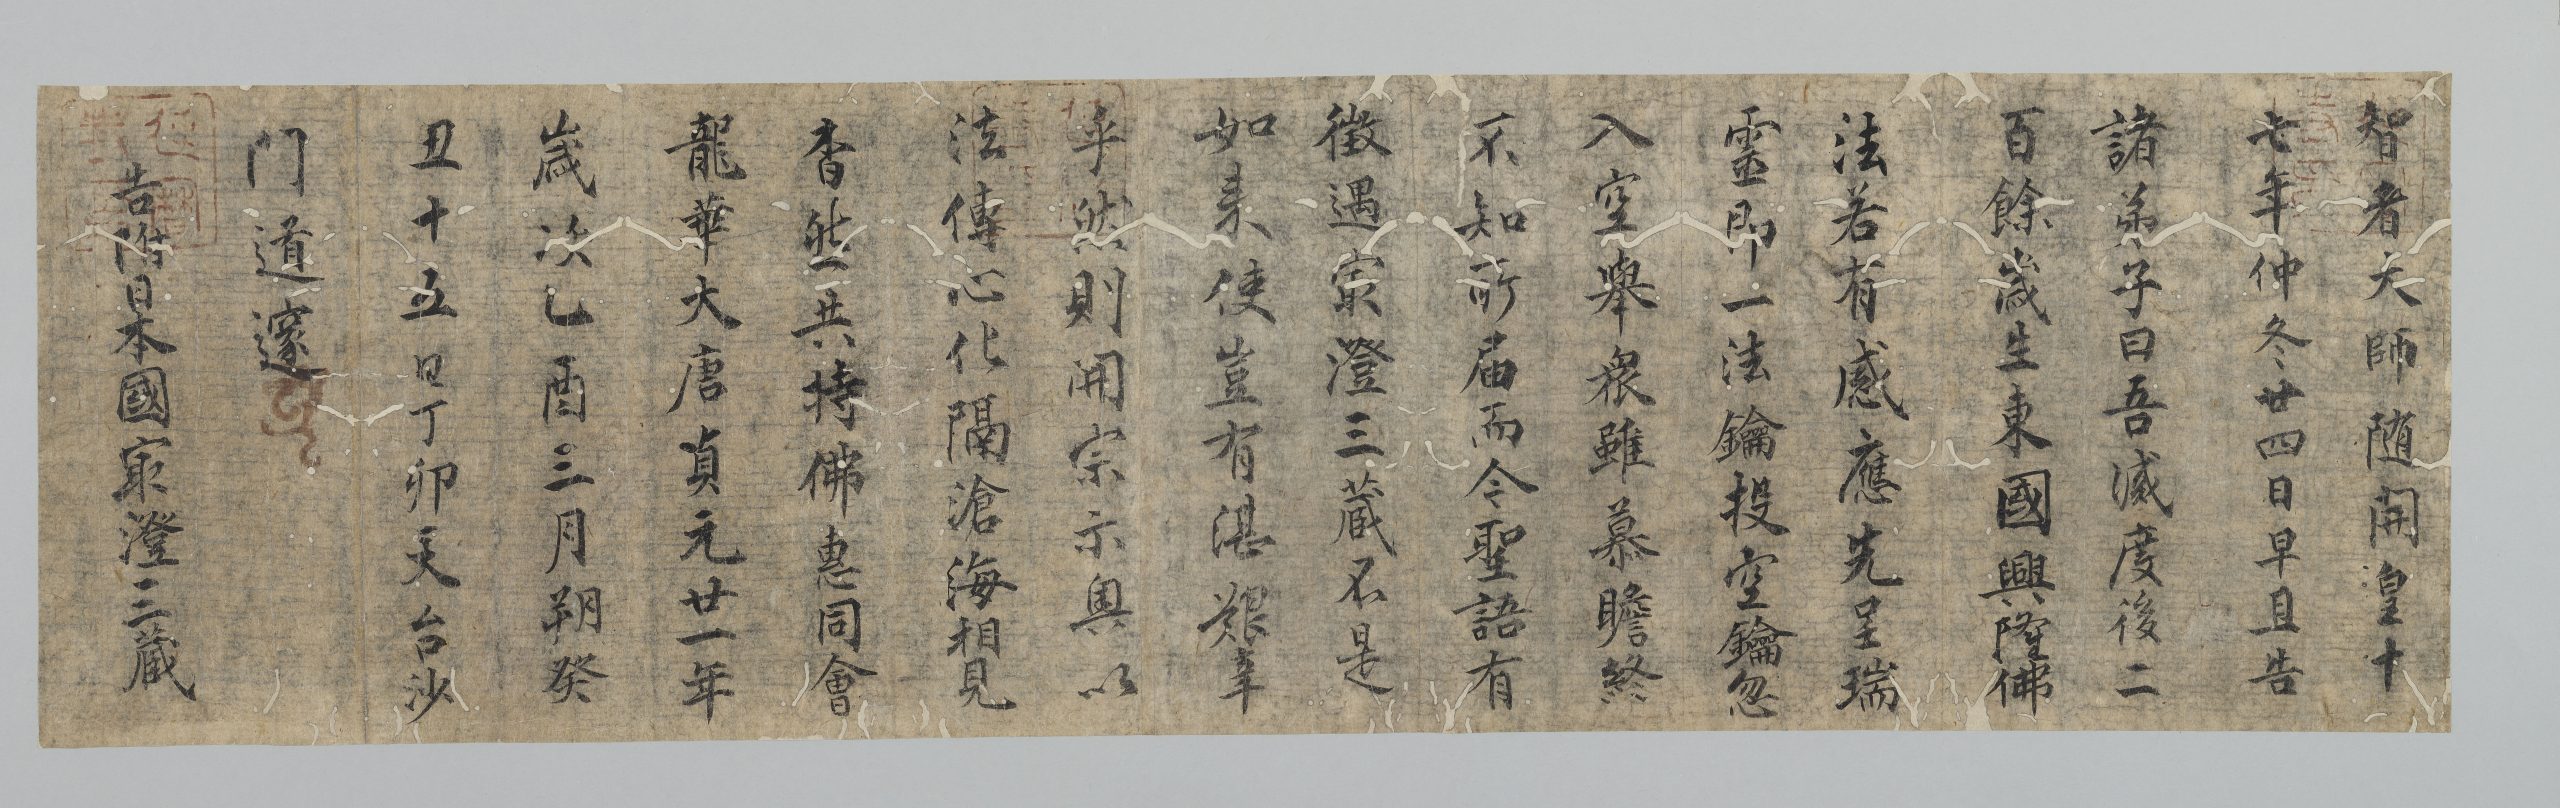 智者大師随開皇十
七年仲冬廿四日早旦告
諸弟子曰吾滅度後二
百餘歳生東國興隆佛
法若有感應先呈瑞
靈即一法鑰投空鑰忽
入空舉衆雖慕瞻終
不知所届而今聖語有
徴遇冣澄三蔵不是
如来使豈有湛艱辛
乎然則開宗示奥以
法傳心化隔滄海相見
杳然共持佛惠同會
龍華大唐貞元廿一年
歳次乙酉三月朔癸
丑十五日丁卯天台沙
門道邃
告附日本國冣澄三蔵